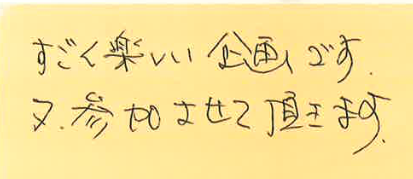 すごく楽しい企画です.
又.参加させて頂きます.